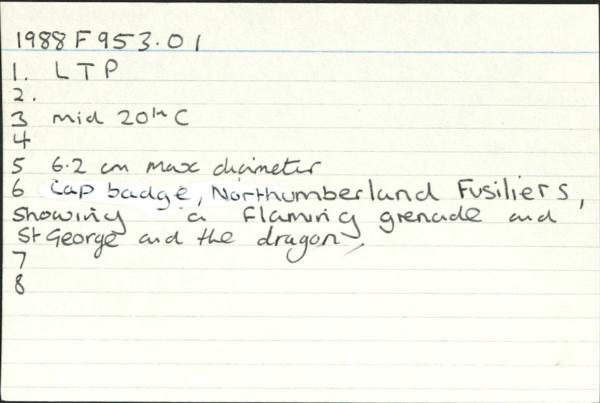 1988 F 953.01
1. LTP
2.
3 mid 20th C
4
5 6.2 cm max diameter
6 Cap badge, Northumberland Fusiliers,
showing a flaming grenade and
St George and the dragon
7
8